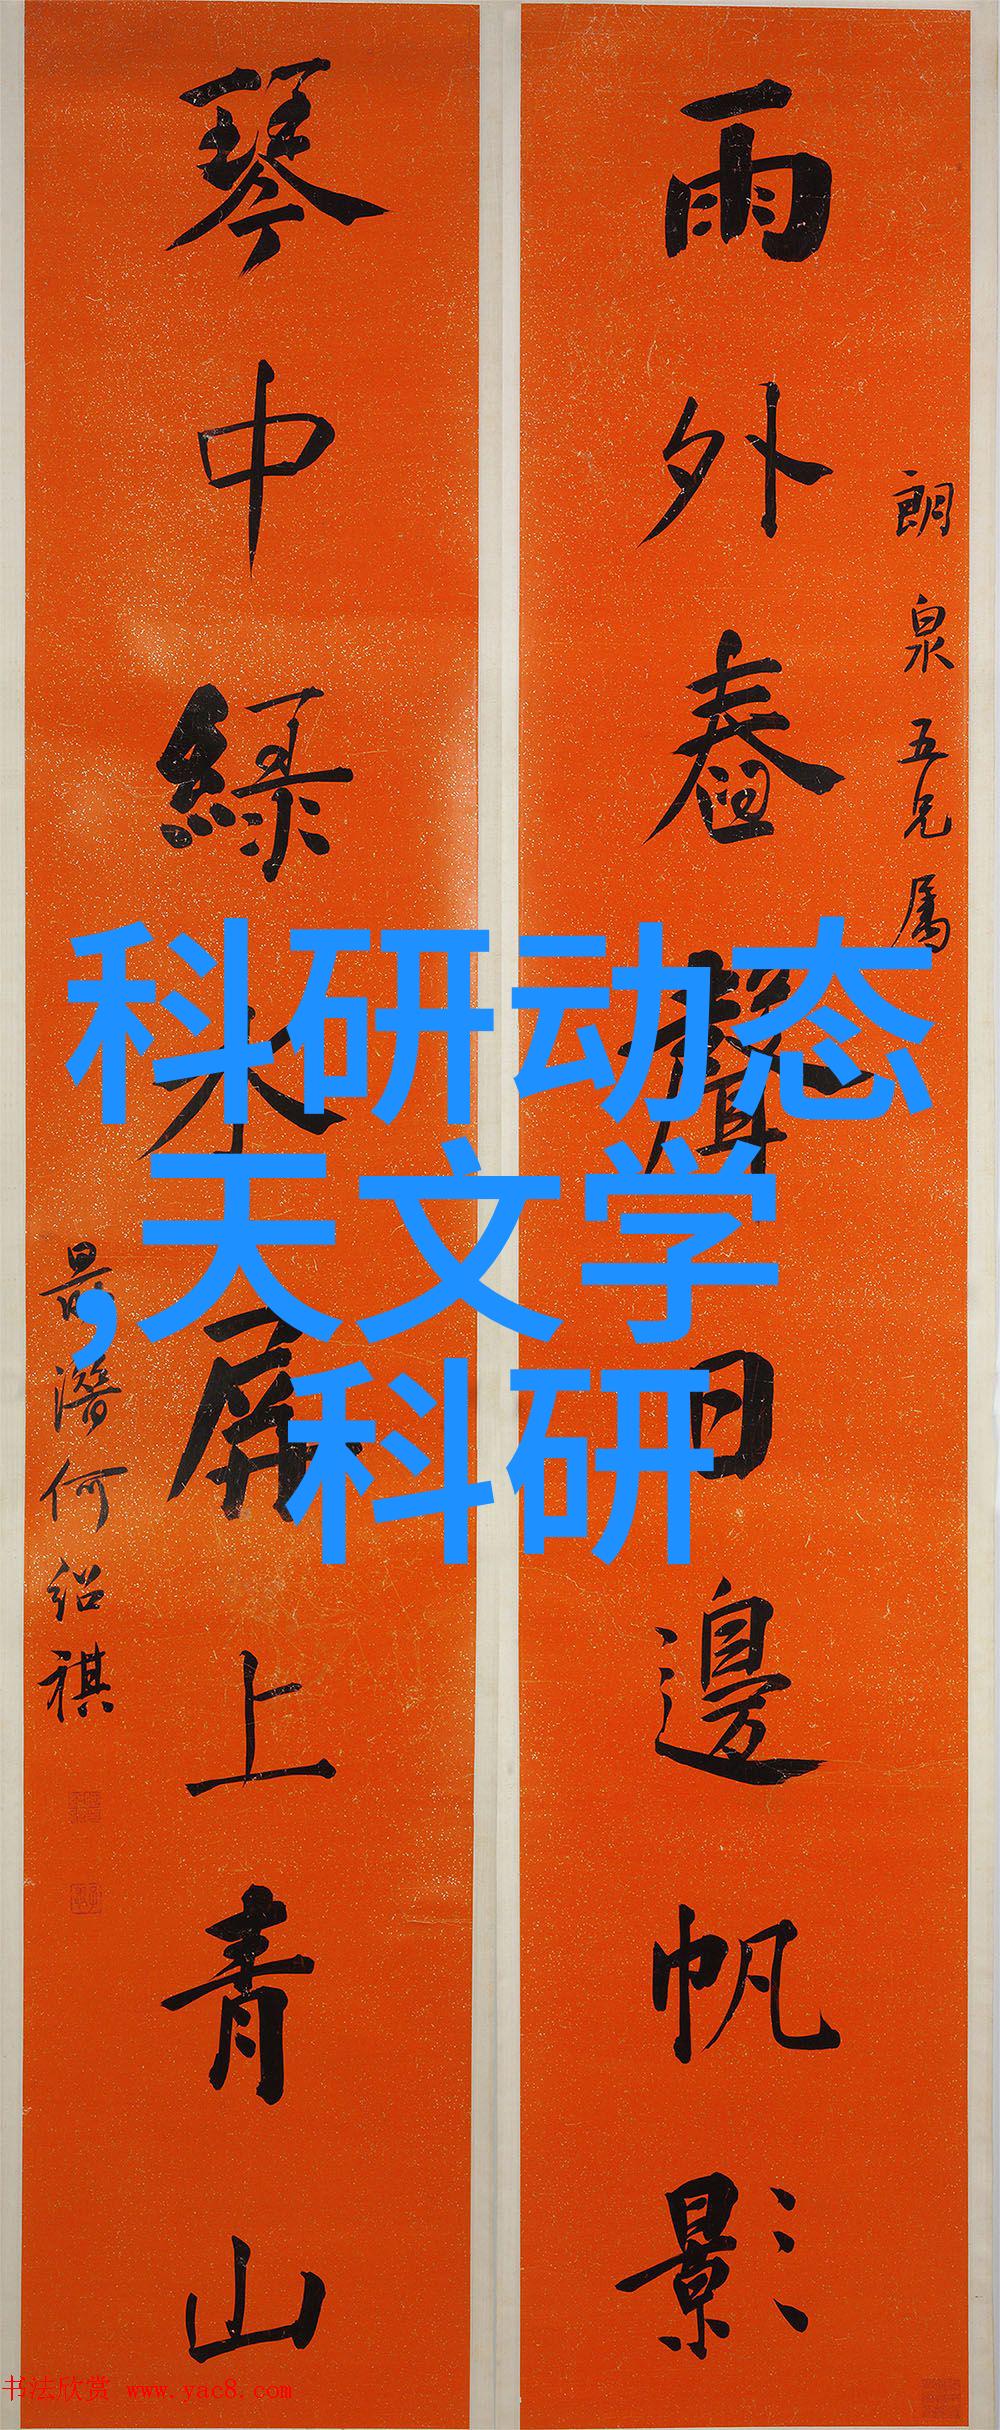 朗泉五兄屬
雨外舂聲日邊帆影
琴中綠水屏上青山
潛何紹祺
科研动态
,天文学
科研
书法欣赏 www.yac8.com